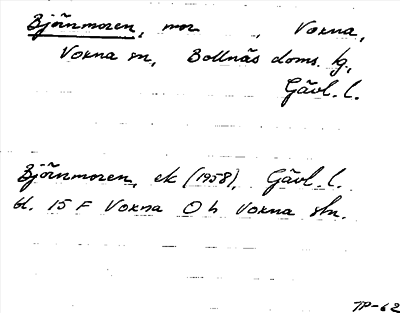 Björnmoren, mor , Voxna,
Voxna sn, Bollnäs doms. tg.,
Gävl. l.
Björnmoren, ek (1958), Gävl. l.
bl. 15 F Voxna O h Voxna stn.
TP-62